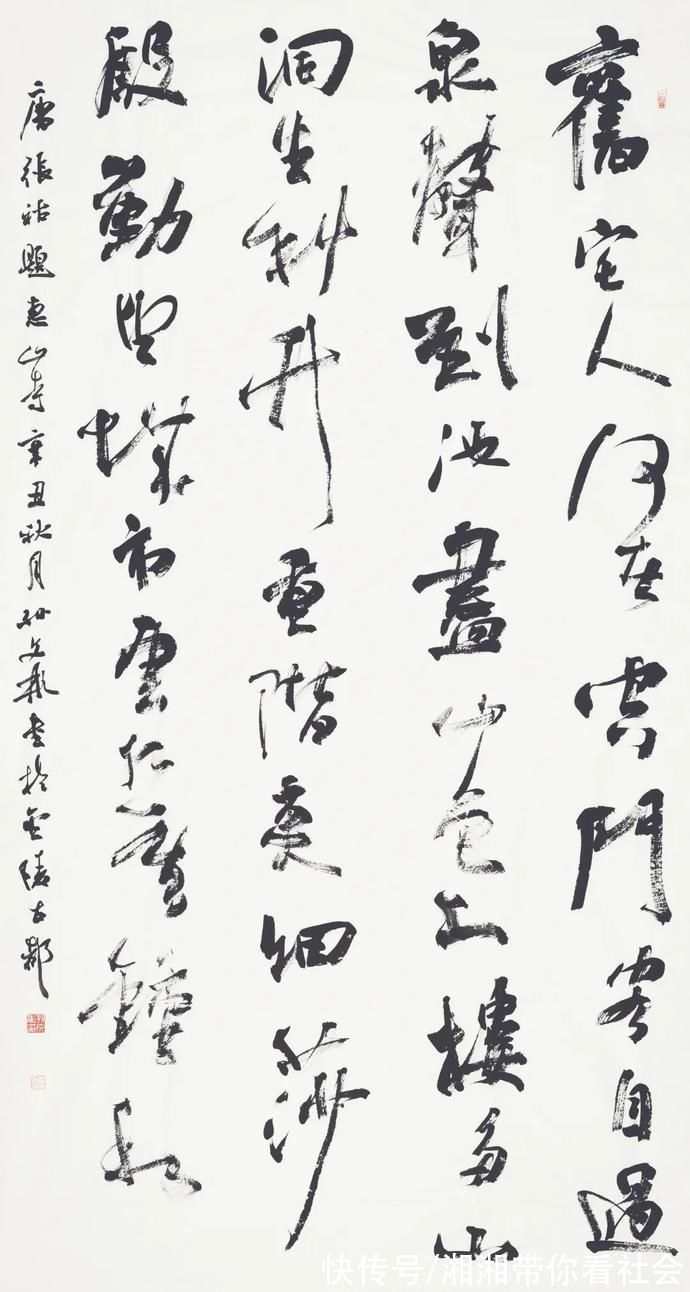 舊宅人何在空門客自過
泉聲到池盡山色上樓多小
洞生斜竹重階夾細莎
殷勤望城市雲水暮鐘和
唐張祜題惠山寺辛丑秋月孫文書於金陵古都
快传号/湘湘带你看社会